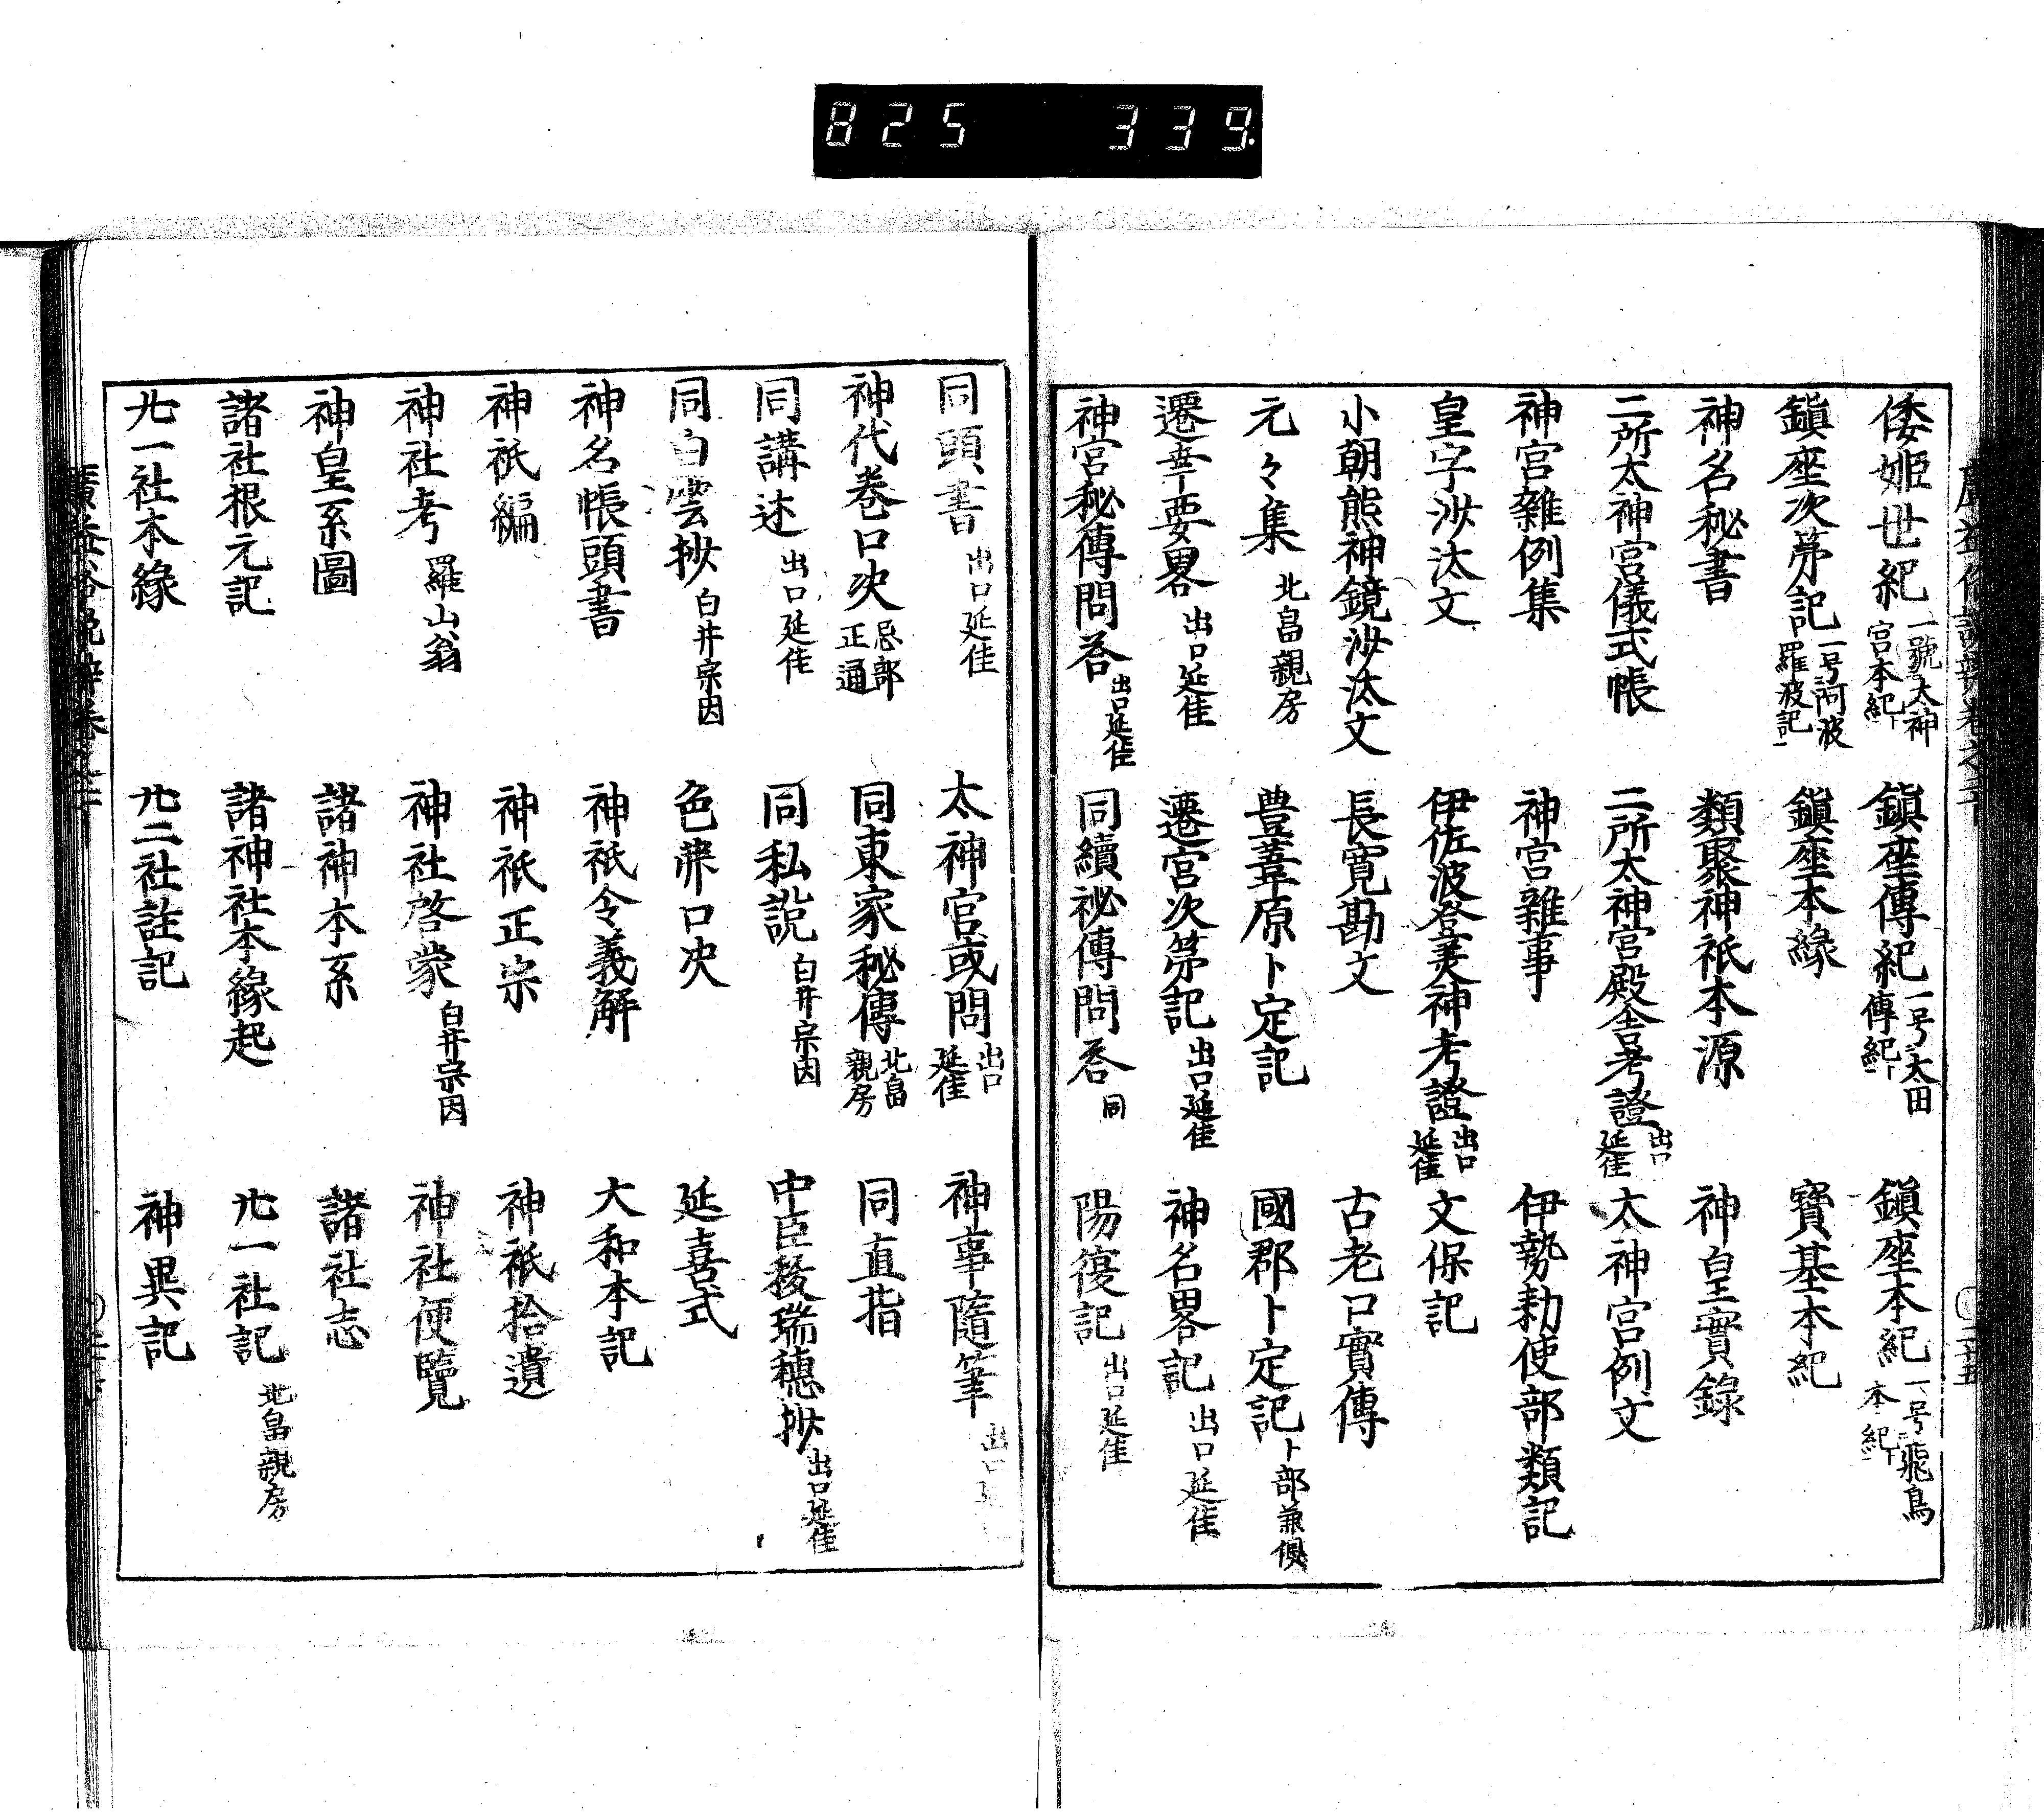 825 339.
倭姬世紀 一號太神宮本紀 鎮座傳紀 一号太田傳紀 鎮座本紀 一号飛鳥本紀
鎮座次第記 一号阿波羅波記 鎮座本縁 寶基本紀
神名秘書 類聚神祇本源 神皇實錄
二所太神宮儀式帳 二所太神宮殿舎考證 出口延佳 太神宮例文
神宮雜例集 神宮雜事 伊勢勅使部類記
皇字沙汰文 伊佐波登美神考證 出口延佳 文保記
小朝熊神鏡沙汰文 長寛勘文 古老口實傳
元々集 北畠親房 豊葦原卜定記 國郡卜定記 卜部兼倶
遷幸要畧 出口延佳 遷宮次第記 出口延佳 神名畧記 出口延佳
神宮秘傳問答 出口延佳 同續祕傳問答 同 陽復記 出口延佳
同頭書 出口延佳 太神宮或問 出口延佳 神事隨筆 出口延
神代巻口决 忌部正通 同東家秘傳 北畠親房 同直指
同講述 出口延佳 同私説 白井宗因 中臣祓瑞穂抄 出口延佳
同白雲抄 白井宗因 色葉口决 延喜式
神名帳頭書 神祇令義解 大和本記
神祇編 神祇正宗 神祇拾遺
神社考 羅山翁 神社啓蒙 白井宗因 神社便覽
神皇系圖 諸神本系 諸社志
諸社根元記 諸神社本縁起 廿一社記 北畠親房
廿一社本縁 廿二社註記 神異記